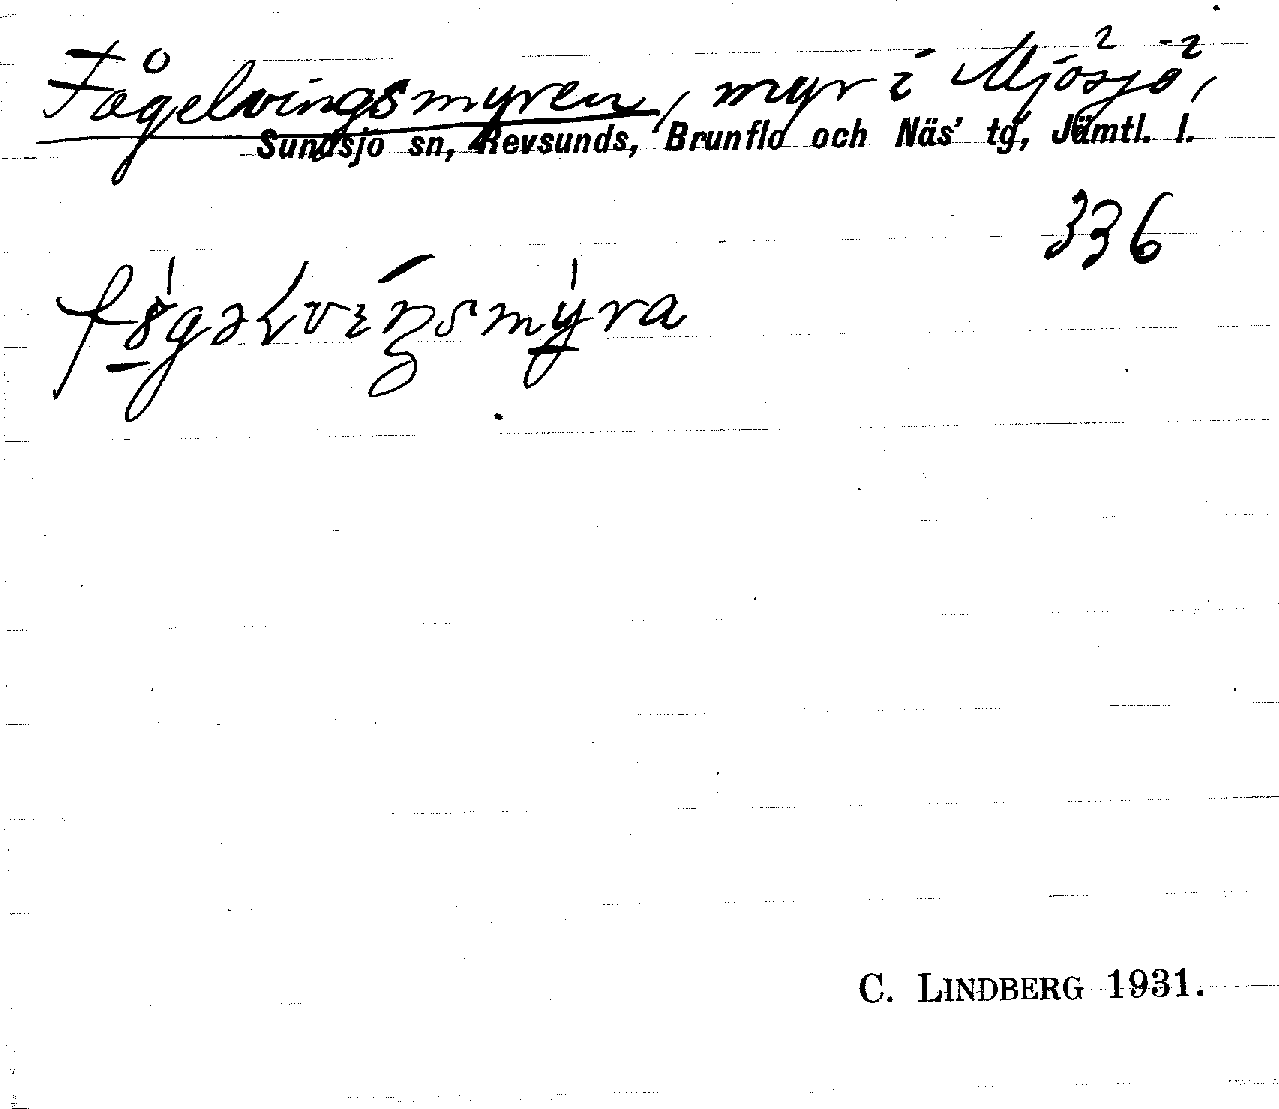 Fågelvingsmyren, myr i Mjösjö,
Sundsjö sn, Revsunds, Brunflo och Näs' tg, Jämtl. l.
336
fǿgəɫvɪŋsmýra
C. LINDBERG 1931.